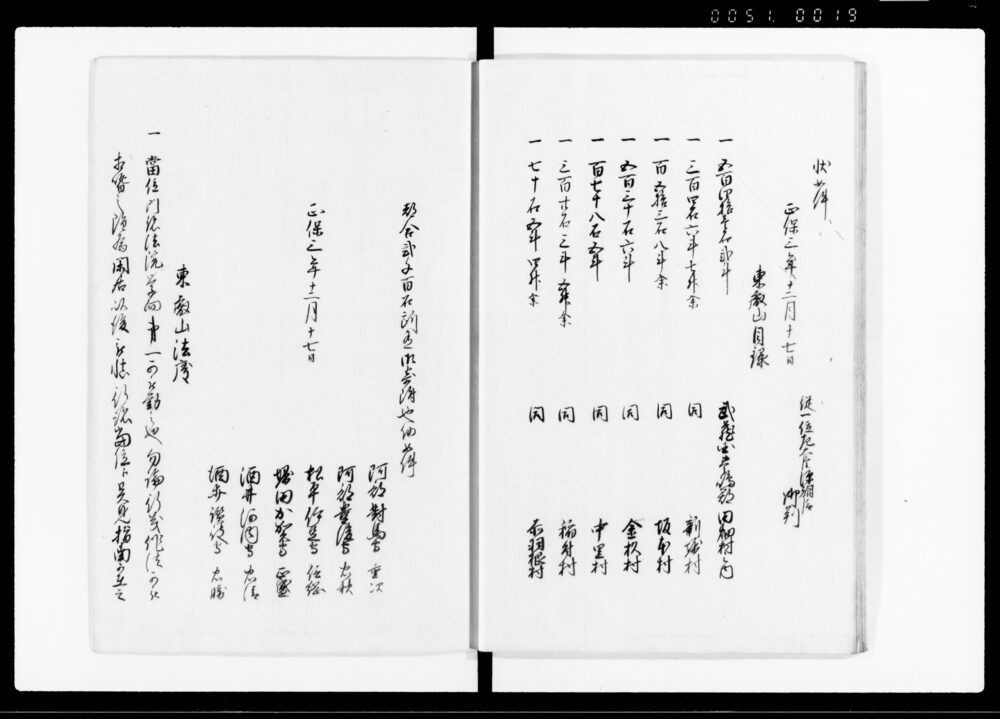 0051. 0019
状如件
正保三年十二月十七日
従一位左大臣源朝臣
御判
東叡山目録
一 五百四拾壱石弐斗 武蔵国豊嶋郡 田畑村之内
一 三百四石六斗七升余 同 新堀村
一 百五拾三石八斗余 同 坂本村
一 五百三十石六斗 同 金杉村
一 百七十八石五斗 同 中里村
一 三百廿石三斗五升余 同 稲付村
一 七十石五斗四升余 同 赤羽根村
都合弐千百石
御寄附也仍如件
正保三年十二月十七日
阿部対馬守 重次
阿部豊後守 忠秋
松平伊豆守 信綱
堀田加賀守 正盛
酒井河内守 忠清
酒井讃岐守 忠勝
東叡山法度
一 當住門跡法流学問専一可被勤之也勿論行義作法可